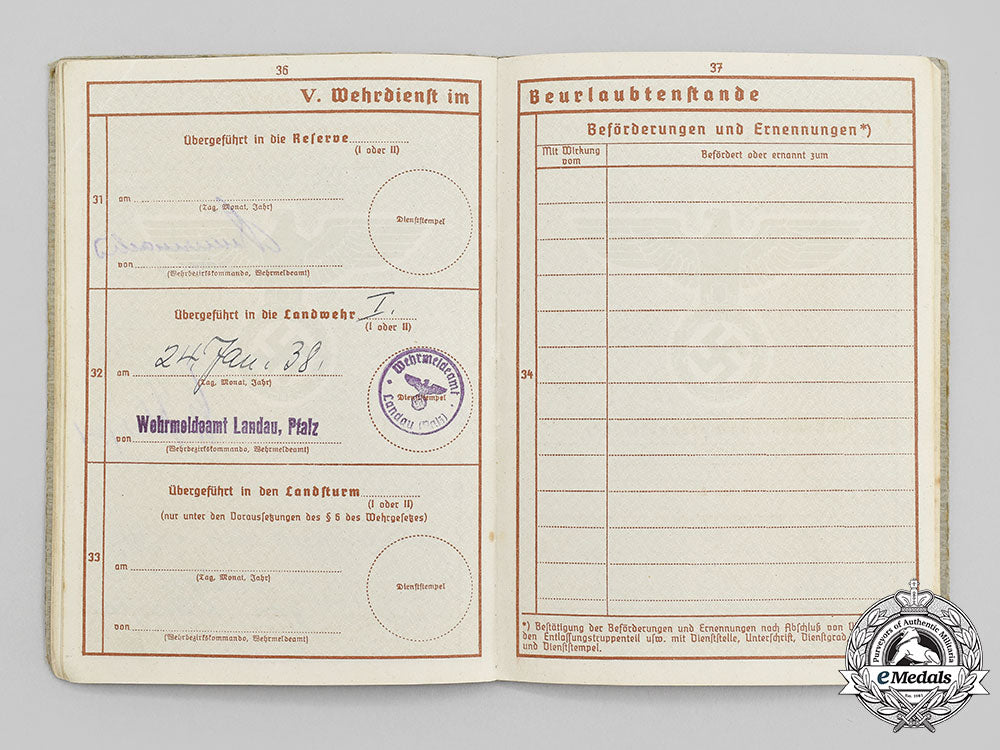 36
V. Wehrdienst im
Übergeführt in die Reserve
(I oder II)
31
am
(Tag, Monat, Jahr)
Dienststempel
von
(Wehrbezirkskommando, Wehrmeldeamt)
Übergeführt in die Landwehr I.
(I oder II)
32
am 24. Jan. 38.
(Tag, Monat, Jahr)
Wehrmeldeamt
Dienststempel
Landau (Pfalz)
Wehrmeldeamt Landau, Pfalz
von
(Wehrbezirkskommando, Wehrmeldeamt)
Übergeführt in den Landsturm
(I oder II)
(nur unter den Voraussetzungen des § 6 des Wehrgesetzes)
33
am
(Tag, Monat, Jahr)
Dienststempel
von
(Wehrbezirkskommando, Wehrmeldeamt)
37
Beurlaubtenstande
Beförderungen und Ernennungen*)
Mit Wirkung
vom
Befördert oder ernannt zum
34
*) Bestätigung der Beförderungen und Ernennungen nach Abschluß von
den Entlassungstruppenteil usw. mit Dienststelle, Unterschrift, Dienstgrad
und Dienststempel.
Purveyors of Authentic Militaria
eMedals